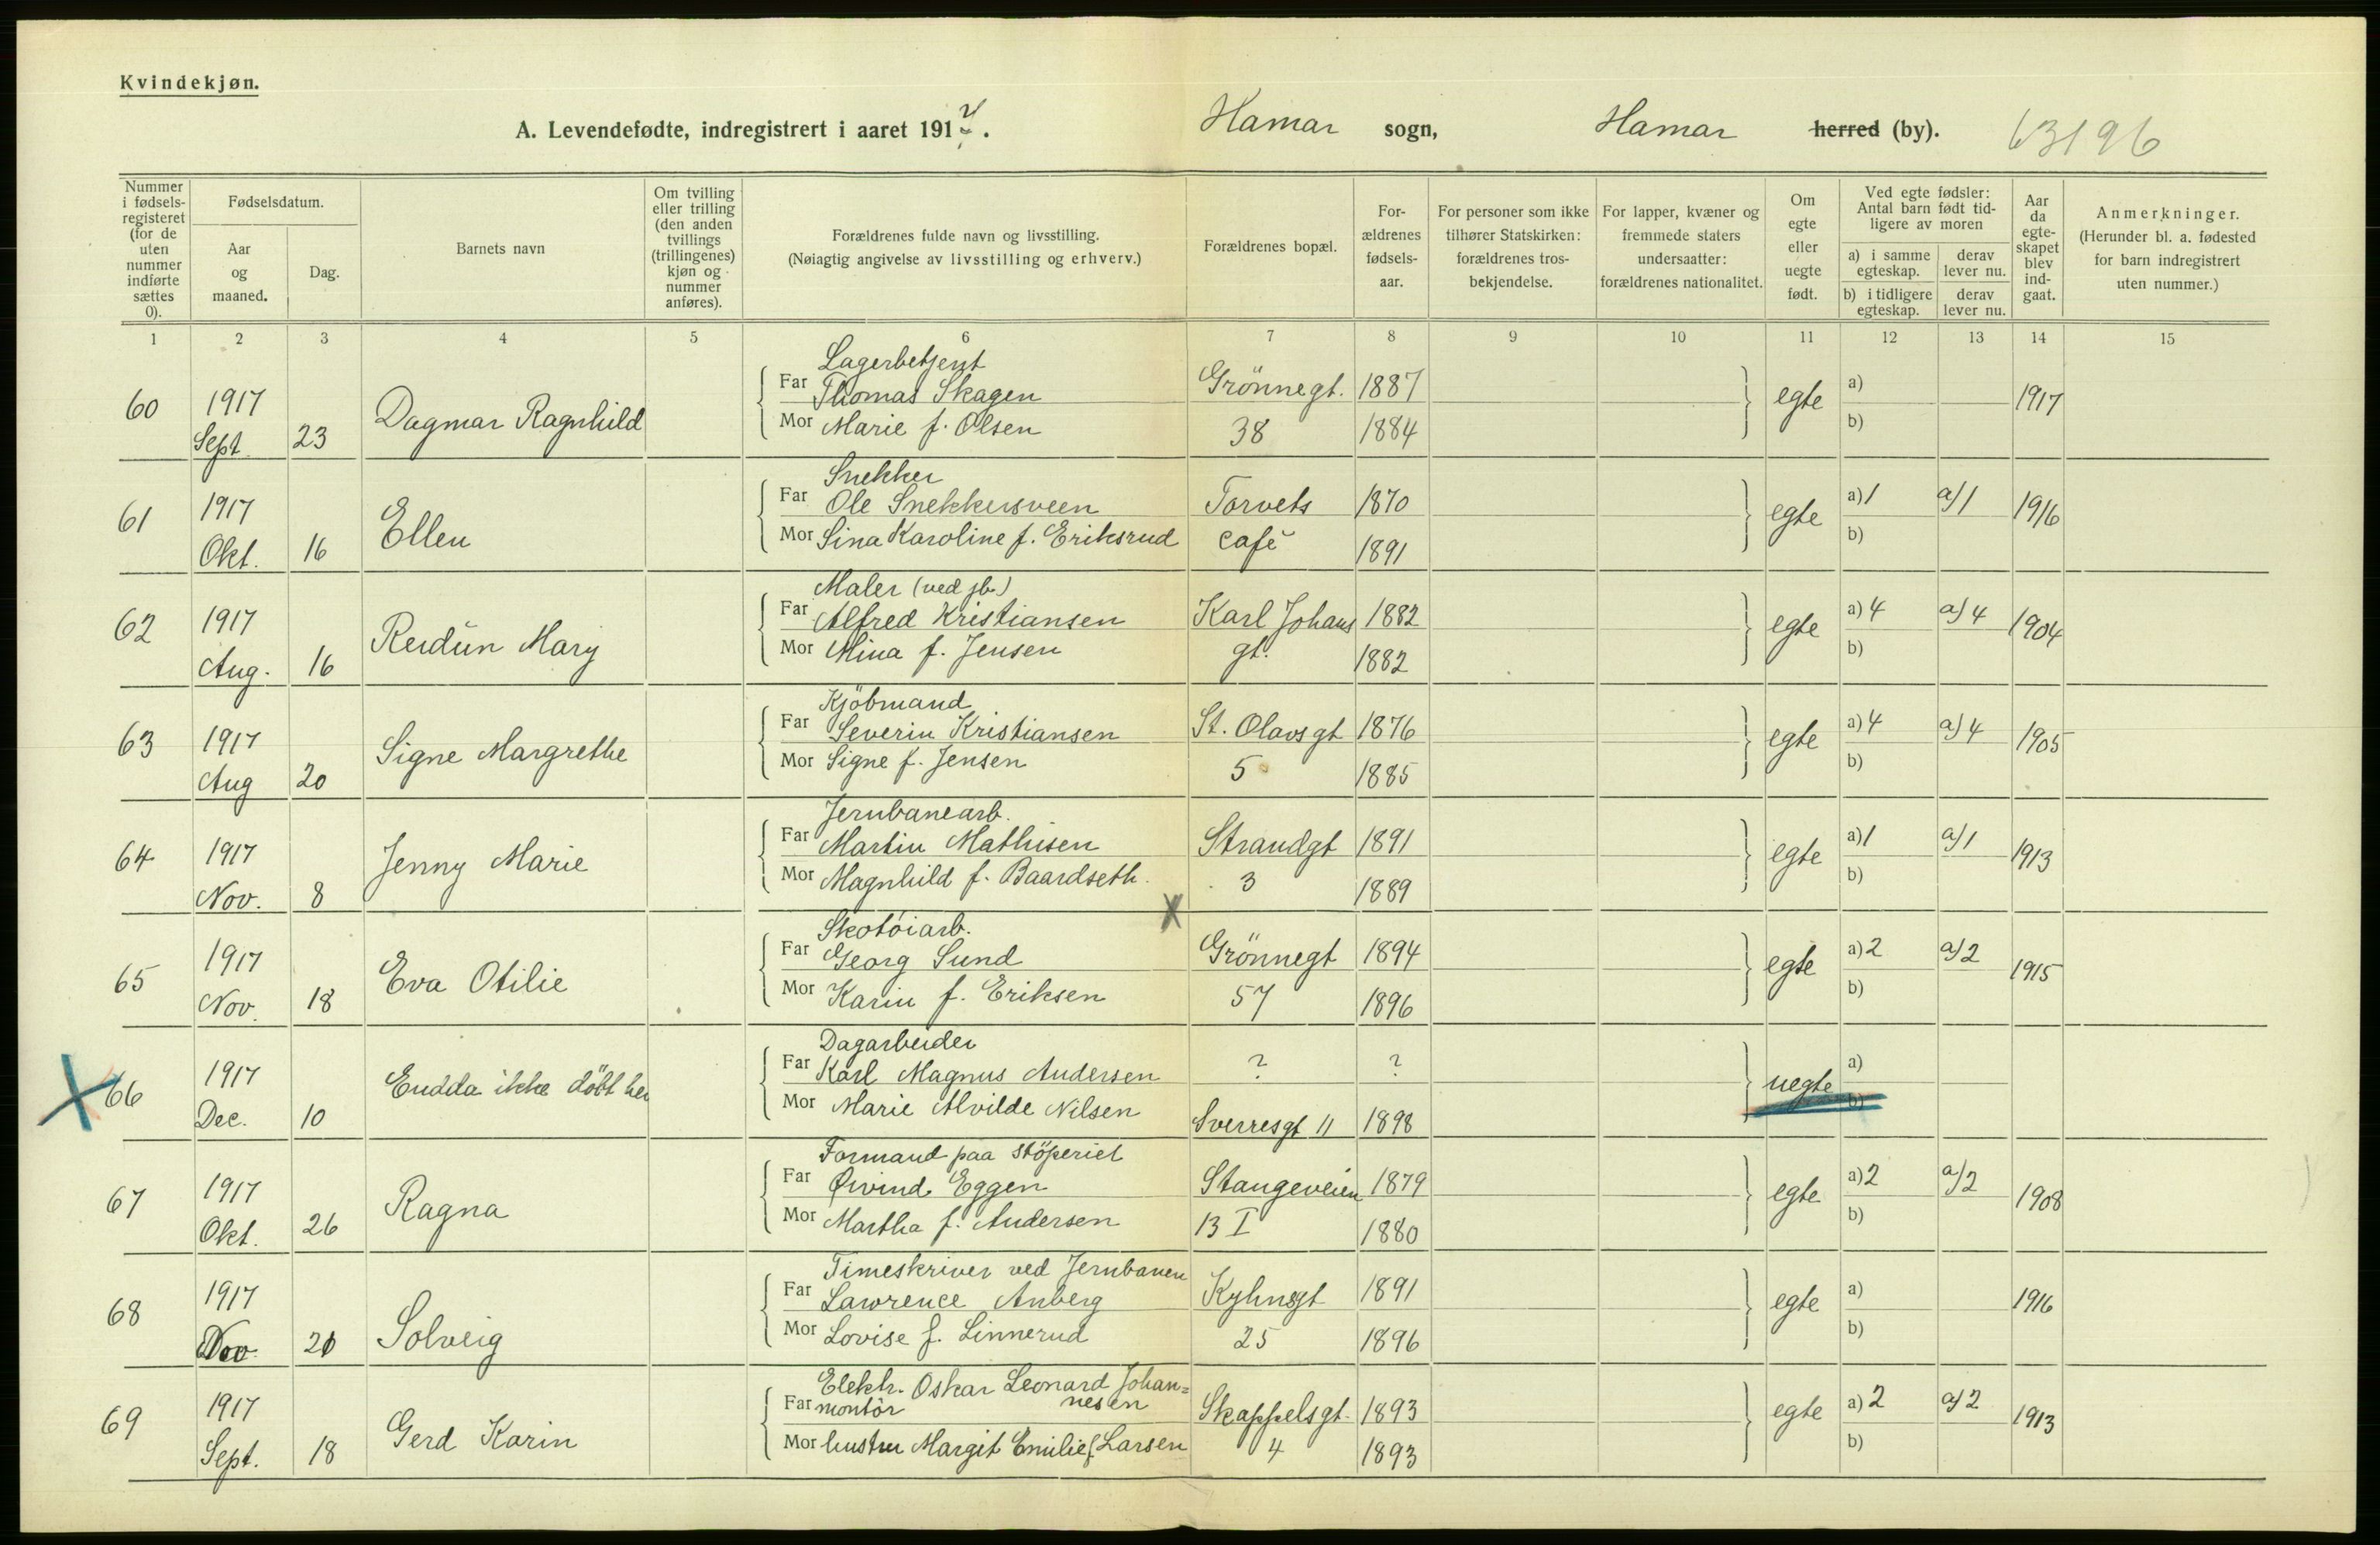 Kvindekjøn.
A. Levendefødte, indregistrert i aaret 1917. Hamar sogn, Hamar herred (by). 63196
Nummer i fødsels-registeret (for de uten nummer indførte sættes 0).
Fødselsdatum.
Aar og maaned.
Dag.
Barnets navn
Om tvilling eller trilling (den anden tvillings (trillingenes) kjøn og nummer anføres).
Forældrenes fulde navn og livsstilling.
(Nøiagtig angivelse av livsstilling og erhverv.)
Forældrenes bopæl.
For-ældrenes fødsels-aar.
For personer som ikke tilhører Statskirken: forældrenes tros-bekjendelse.
For lapper, kvæner og fremmede staters undersaatter: forældrenes nationalitet.
Om egte eller uegte født.
Ved egte fødsler: Antal barn født tid-ligere av moren
a) i samme egteskap. derav lever nu.
b) i tidligere egteskap. derav lever nu.
Aar da egte-skapet blev ind-gaat.
Anmerkninger.
(Herunder bl. a. fødested for barn indregistrert uten nummer.)
1 2 3 4 5 6 7 8 9 10 11 12 13 14 15
Lagerbetjent
60 1917 Far Thomas Skagen Grönnegt. 1887 egte a) 1917
Sept. 23 Dagmar Ragnhild Mor Marie f. Olsen 38 1884 b)
Snekker
61 1917 Far Ole Snekkersveen Torvets 1870 egte a) 1 a) 1 1916
Okt. 16 Ellen Mor Sina Karoline f. Eriksrud café 1891 b)
Maler (ved jb.)
62 1917 Far Alfred Kristiansen Karl Johans 1882 egte a) 4 a) 4 1904
Aug. 16 Reidun Mary Mor Mina f. Jensen gt. 1882 b)
Kjöbmand
63 1917 Far Severin Kristiansen St. Olavsgt 1876 egte a) 4 a) 4 1905
Aug 20 Signe Margrethe Mor Signe f. Jensen 5 1885 b)
Jernbanearb.
64 1917 Far Martin Mathisen Strandgt 1891 egte a) 1 a) 1 1913
Nov. 8 Jenny Marie Mor Magnhild f. Baardseth. 3 1889 b)
Skotöiarb. X
65 1917 Far Georg Sund Grönnegt 1894 egte a) 2 a) 2 1915
Nov. 18 Eva Otilie Mor Karin f. Eriksen 57 1896 b)
Dagarbeider
X 66 1917 Far Karl Magnus Andersen ? ? uegte a)
Dec. 10 Endda ikke döbt her Mor Marie Alvilde Nilsen Sverresgt 11 1898 b)
Formand paa stöperiet
67 1917 Far Øivind Eggen Stangeveien 1879 egte a) 2 a) 2 1908
Okt. 26 Ragna Mor Martha f. Andersen 13 I 1880 b)
Timeskriver ved Jernbanen
68 1917 Far Lawrence Anberg Kyhnsgt 1891 egte a) 1916
Nov. 21 Solveig Mor Lovise f. Linnerud 25 1896 b)
Elektr. Oskar Leonard Johan=
69 1917 Far montör nesen Skappelsgt. 1893 egte a) 2 a) 2 1913
Sept. 18 Gerd Karin Mor hustru Margit Emilie f. Larsen 4 1893 b)